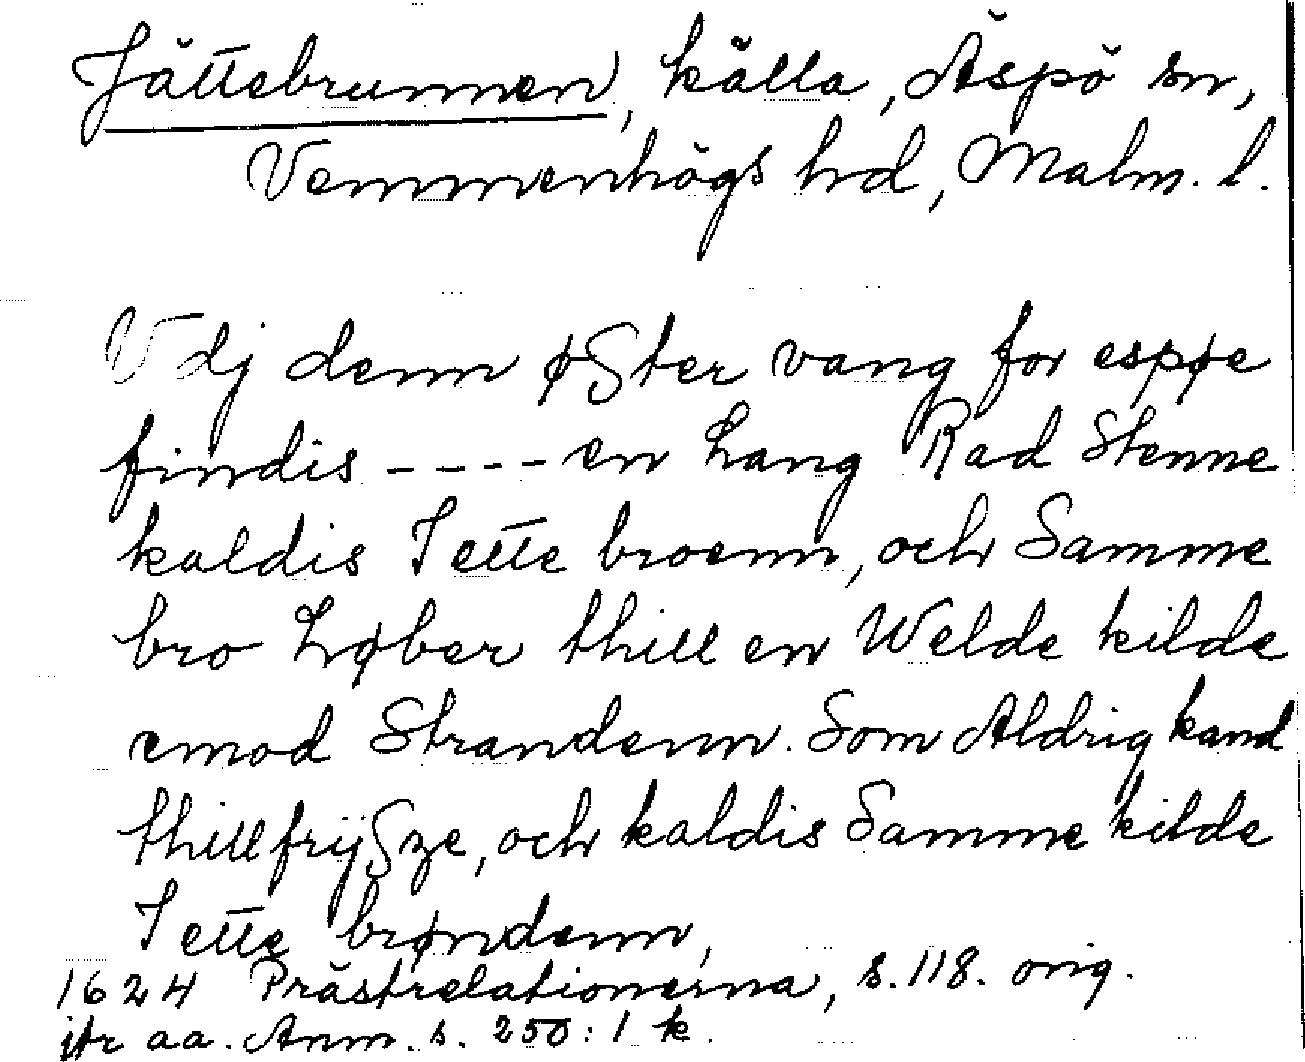 Jättebrunnen, källa, Äspö sn,
Vemmenhögs hd, Malm. l.
Vdj denn øster vang for espøe
findis ----- en Lang Rad Stenne
kaldis Jette broenn, och Samme
bro Løber thill en Welde kilde
emod Strandenn. Som Aldrig kand
thillfrÿsze, och kaldis Samme kilde
Jette brøndenn,
1624 Prästrelationerna, s. 118. orig.
jfr aa. Anm. s. 250: 1 k.